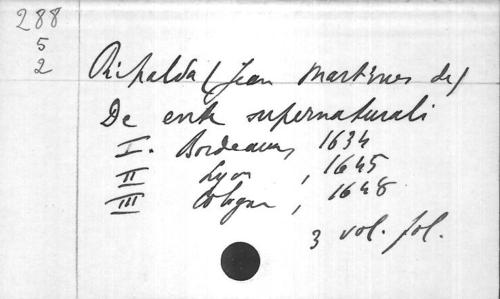 288
5
2
Ripalda (Jean Martinez de)
De ente supernaturali
I. Bordeaux, 1634
II Lyon, 1645
III Cologne, 1648
3 vol. fol.